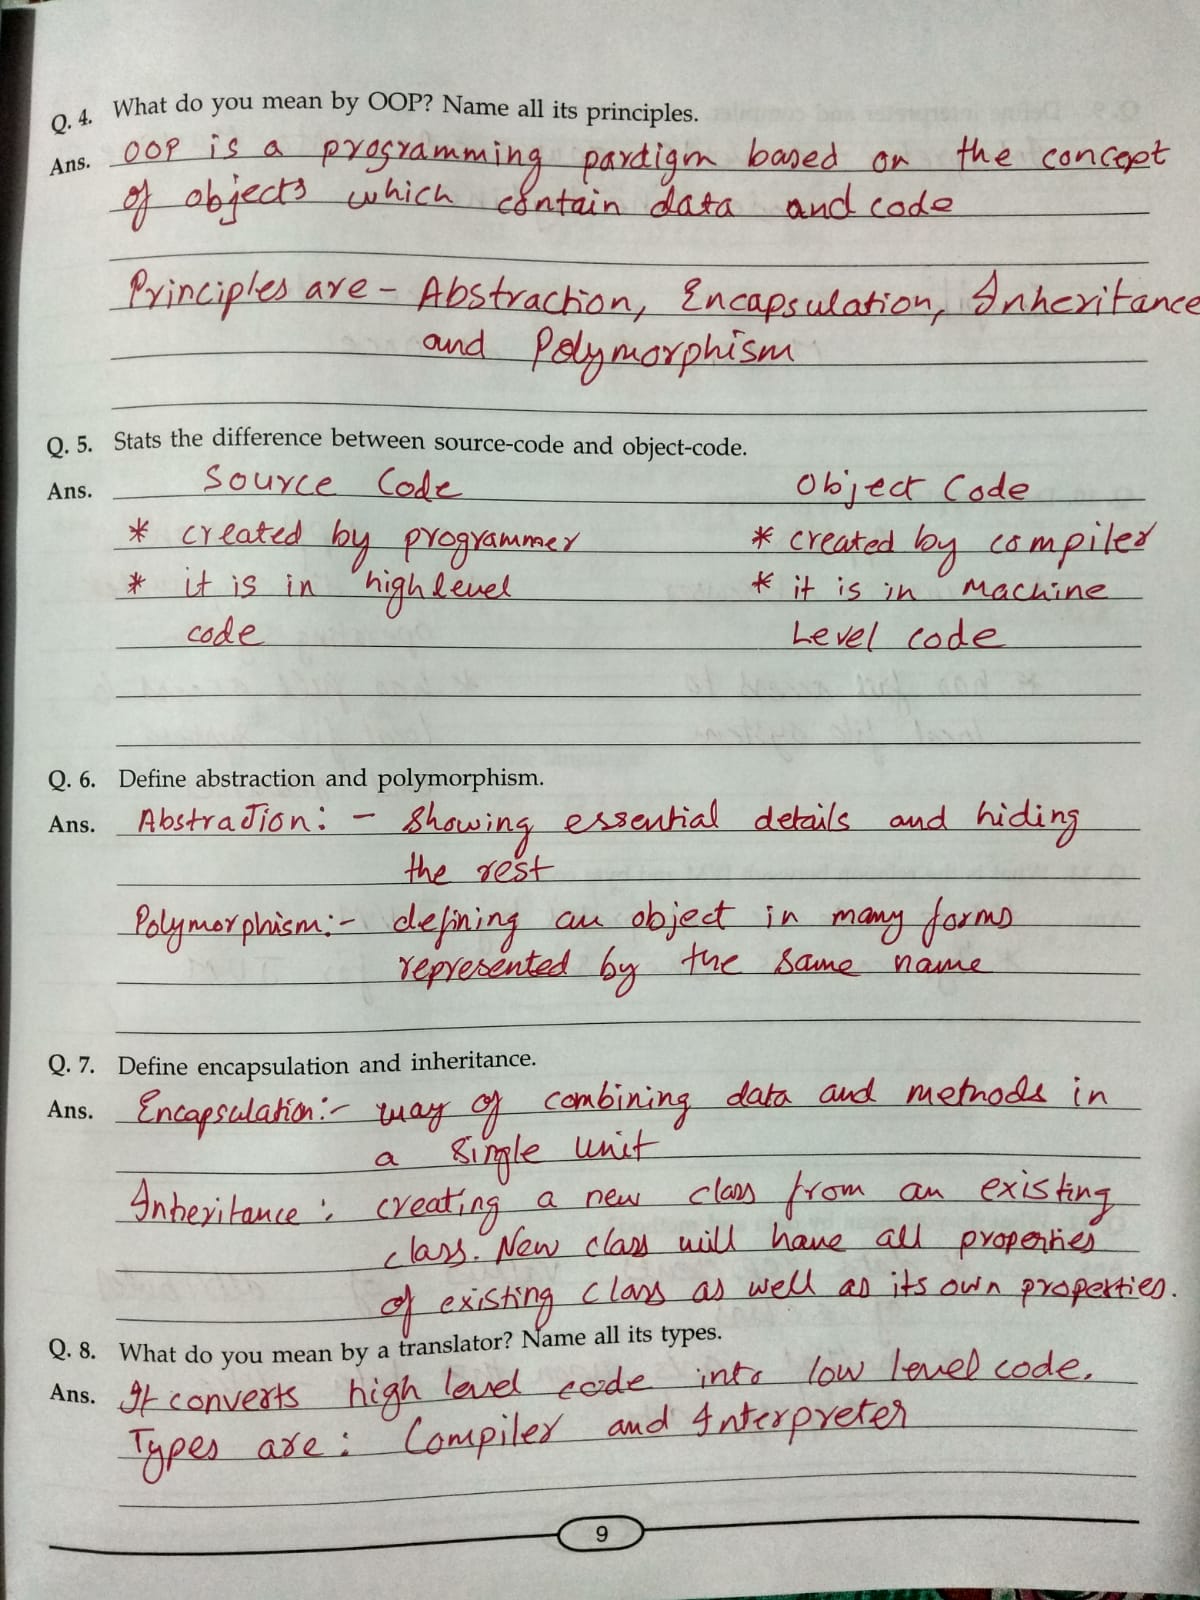 Q. 4. What do you mean by OOP? Name all its principles.
Ans. OOP is a programming pardigm based on the concept
of objects which contain data and code
Principles are - Abstraction, Encapsulation, Inheritance
and Polymorphism
Q. 5. Stats the difference between source-code and object-code.
Ans. Source Code Object Code
* created by programmer * created by compiler
* it is in high level * it is in Machine
code Level code
Q. 6. Define abstraction and polymorphism.
Ans. Abstraction: - Showing essential details and hiding
the rest
Polymorphism:- defining an object in many forms
represented by the same name
Q. 7. Define encapsulation and inheritance.
Ans. Encapsulation:- way of combining data and methods in
a single unit
Inheritance: creating a new class from an existing
class. New class will have all properties
of existing class as well as its own properties.
Q. 8. What do you mean by a translator? Name all its types.
Ans. It converts high level code into low level code.
Types are: Compiler and Interpreter
9